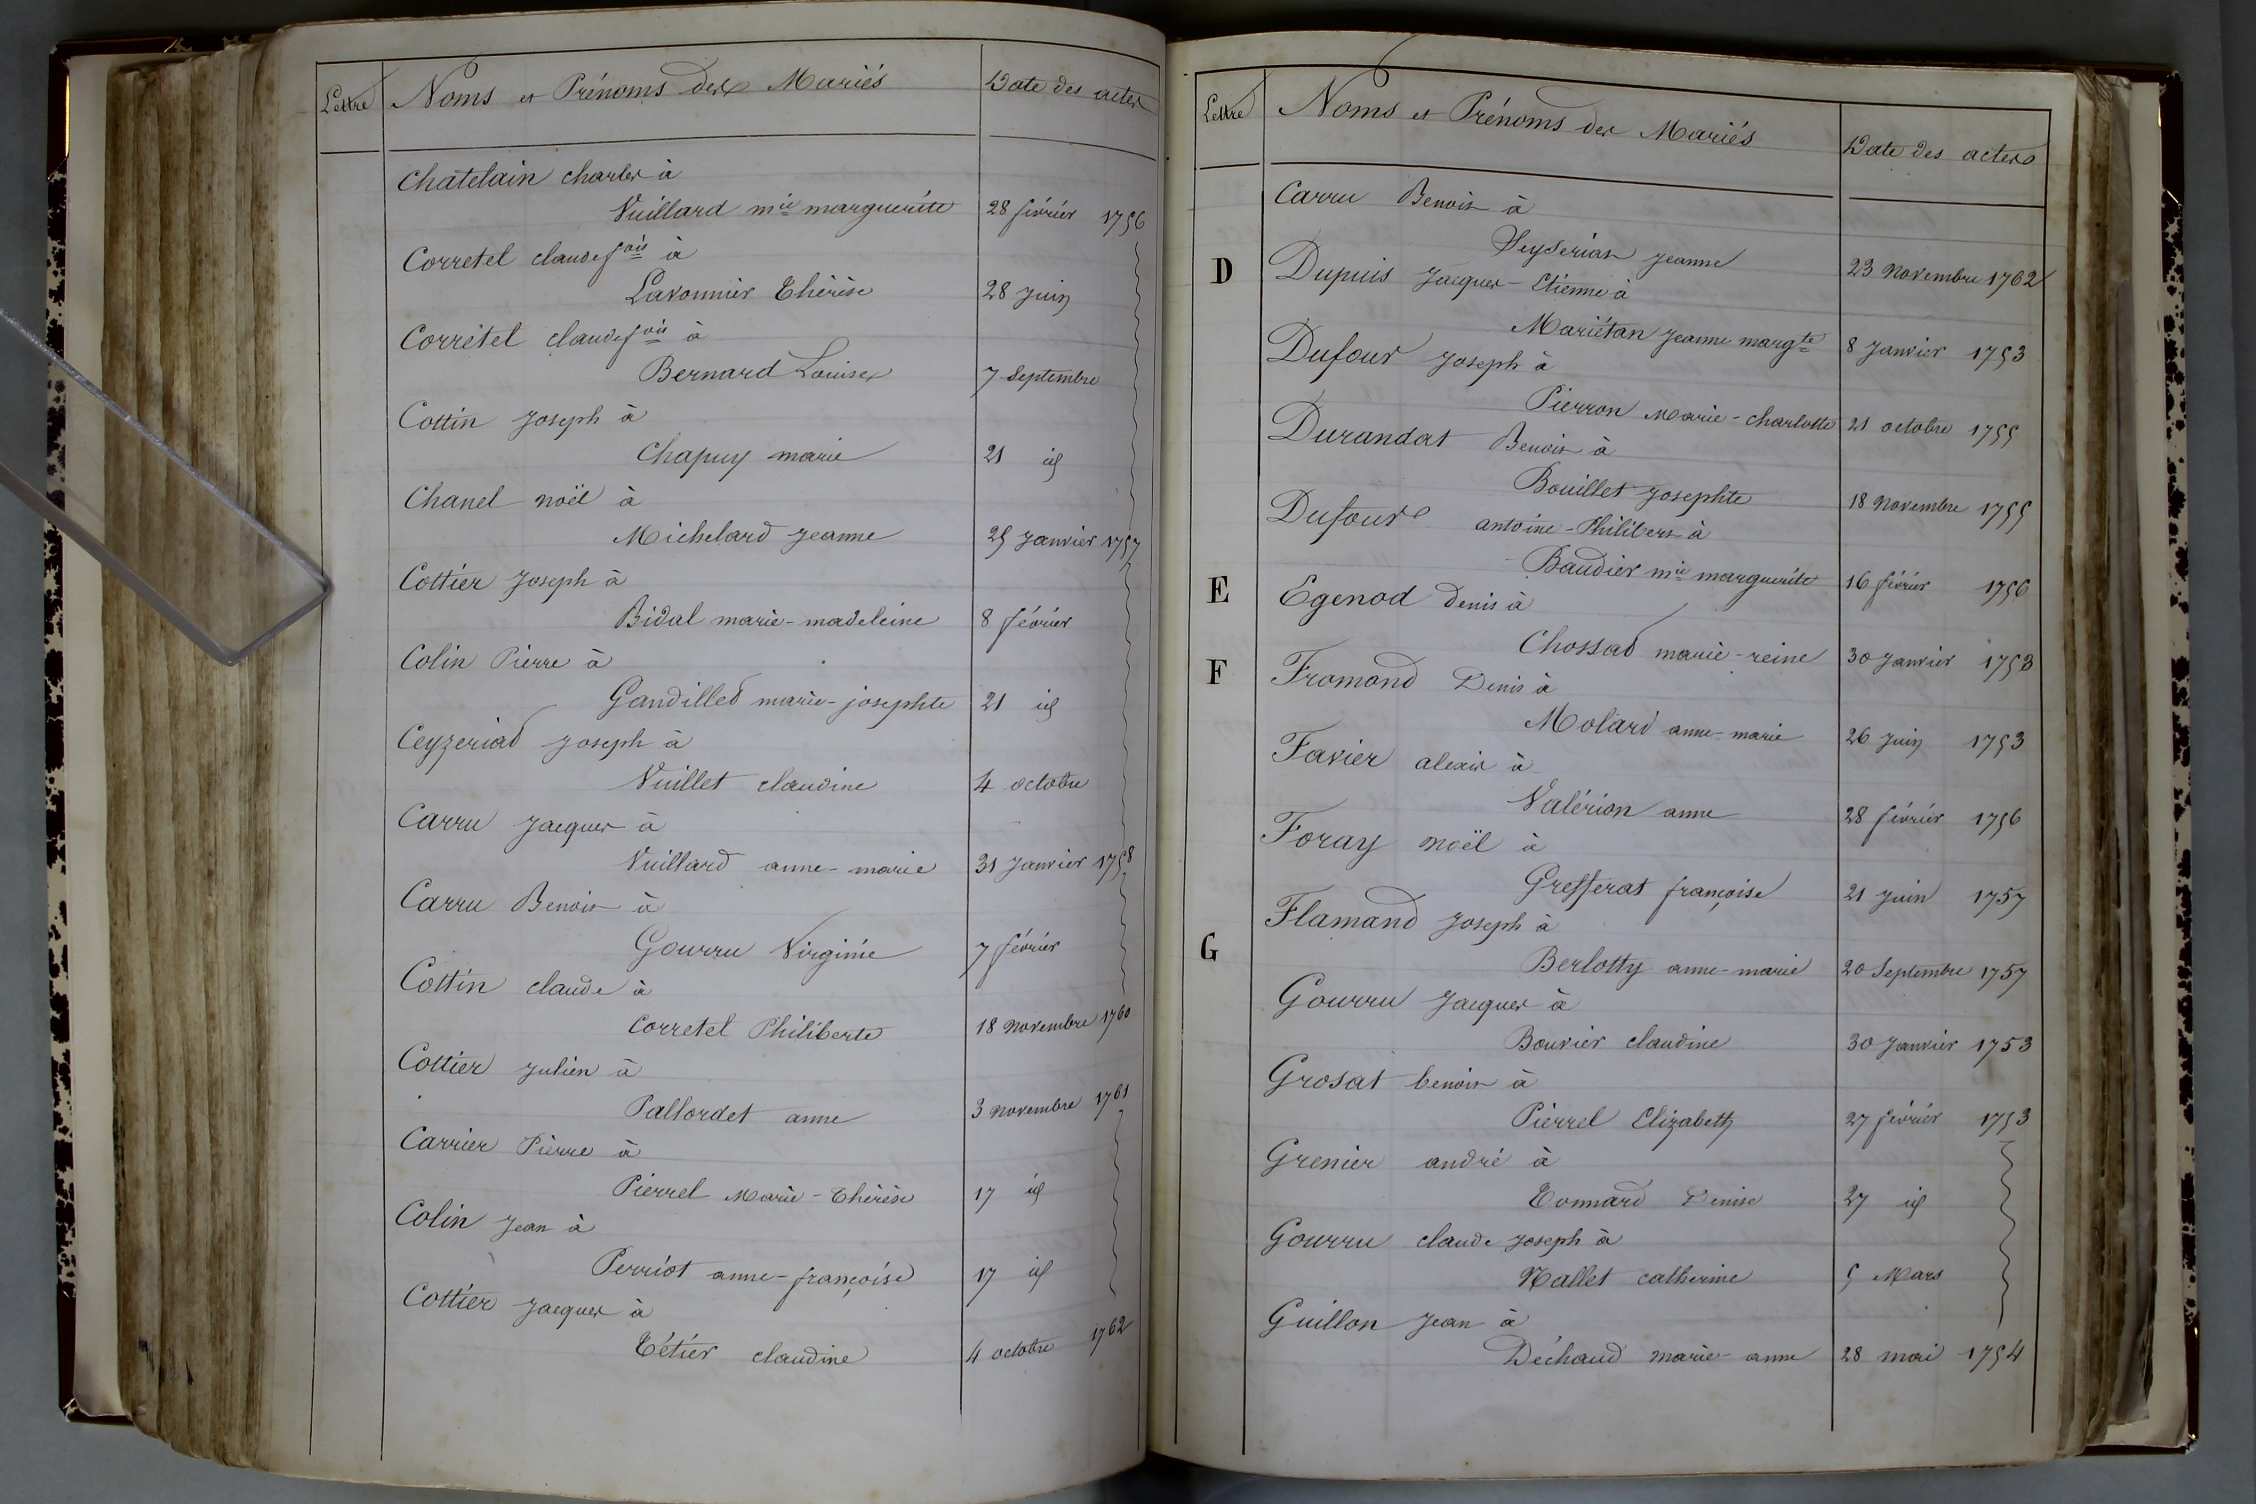 Lettre Noms et Prénoms des Mariés Date des actes
Chatelain charles à
Vuillard mie marguerite 28 février 1756
Corretel claude fois à
Lavonnier Thérèse 28 juin
Corrétel claude fois à
Bernard Louise 7 Septembre
Cottin Joseph à
Chapuy marie 21 id
Chanel noël à
Michelard Jeanne 25 Janvier 1757
Cottier Joseph à
Bidal marie-madeleine 8 février
Colin Pierre à
Gandilled marie-josephte 21 id
Ceyzeriad Joseph à
Vuillet claudine 4 octobre
Carru Jacques à
Vuillard anne-marie 31 Janvier 1758
Carru Benoit à
Gourru Virginie 7 février
Cottin claude à
Corretel Philiberte 18 novembre 1760
Cottier Julien à
Pallordet anne 3 novembre 1761
Carrier Pierre à
Pierrel Marie-Thérèse 17 id
Colin Jean à
Perriot anne-françoise 17 id
Cottier Jacques à
Tétier claudine 4 octobre 1762
Lettre Noms et Prénoms des Mariés Date des actes
Carru Benoit à
Seyseriat Jeanne 23 novembre 1762
D Dupuis Jacques-Etienne à
Mariétan Jeanne margte 8 Janvier 1753
Dufour Joseph à
Pierron Marie-charlotte 21 octobre 1755
Durandat Benoit à
Bouillet Josephte 18 novembre 1755
Dufour antoine-Philibert à
Baudier mie marguerite 16 février 1756
E Egenod Denis à
Chossad marie-reine 30 Janvier 1753
F Fromond Denis à
Molard anne-marie 26 Juin 1753
Favier alexis à
Valérion anne 28 février 1756
Foray noël à
Grefferat françoise 21 Juin 1757
Flamand Joseph à
Berlotty anne-marie 20 Septembre 1757
G Gourru Jacques à
Bouvier claudine 30 Janvier 1753
Grosat benoit à
Pierrel Elizabeth 27 février 1753
Grenier andré à
Tonnard Denise 27 id
Gourru claude Joseph à
Nallet catherine 5 Mars
Guillon Jean à
Déchaud marie-anne 28 mai 1754